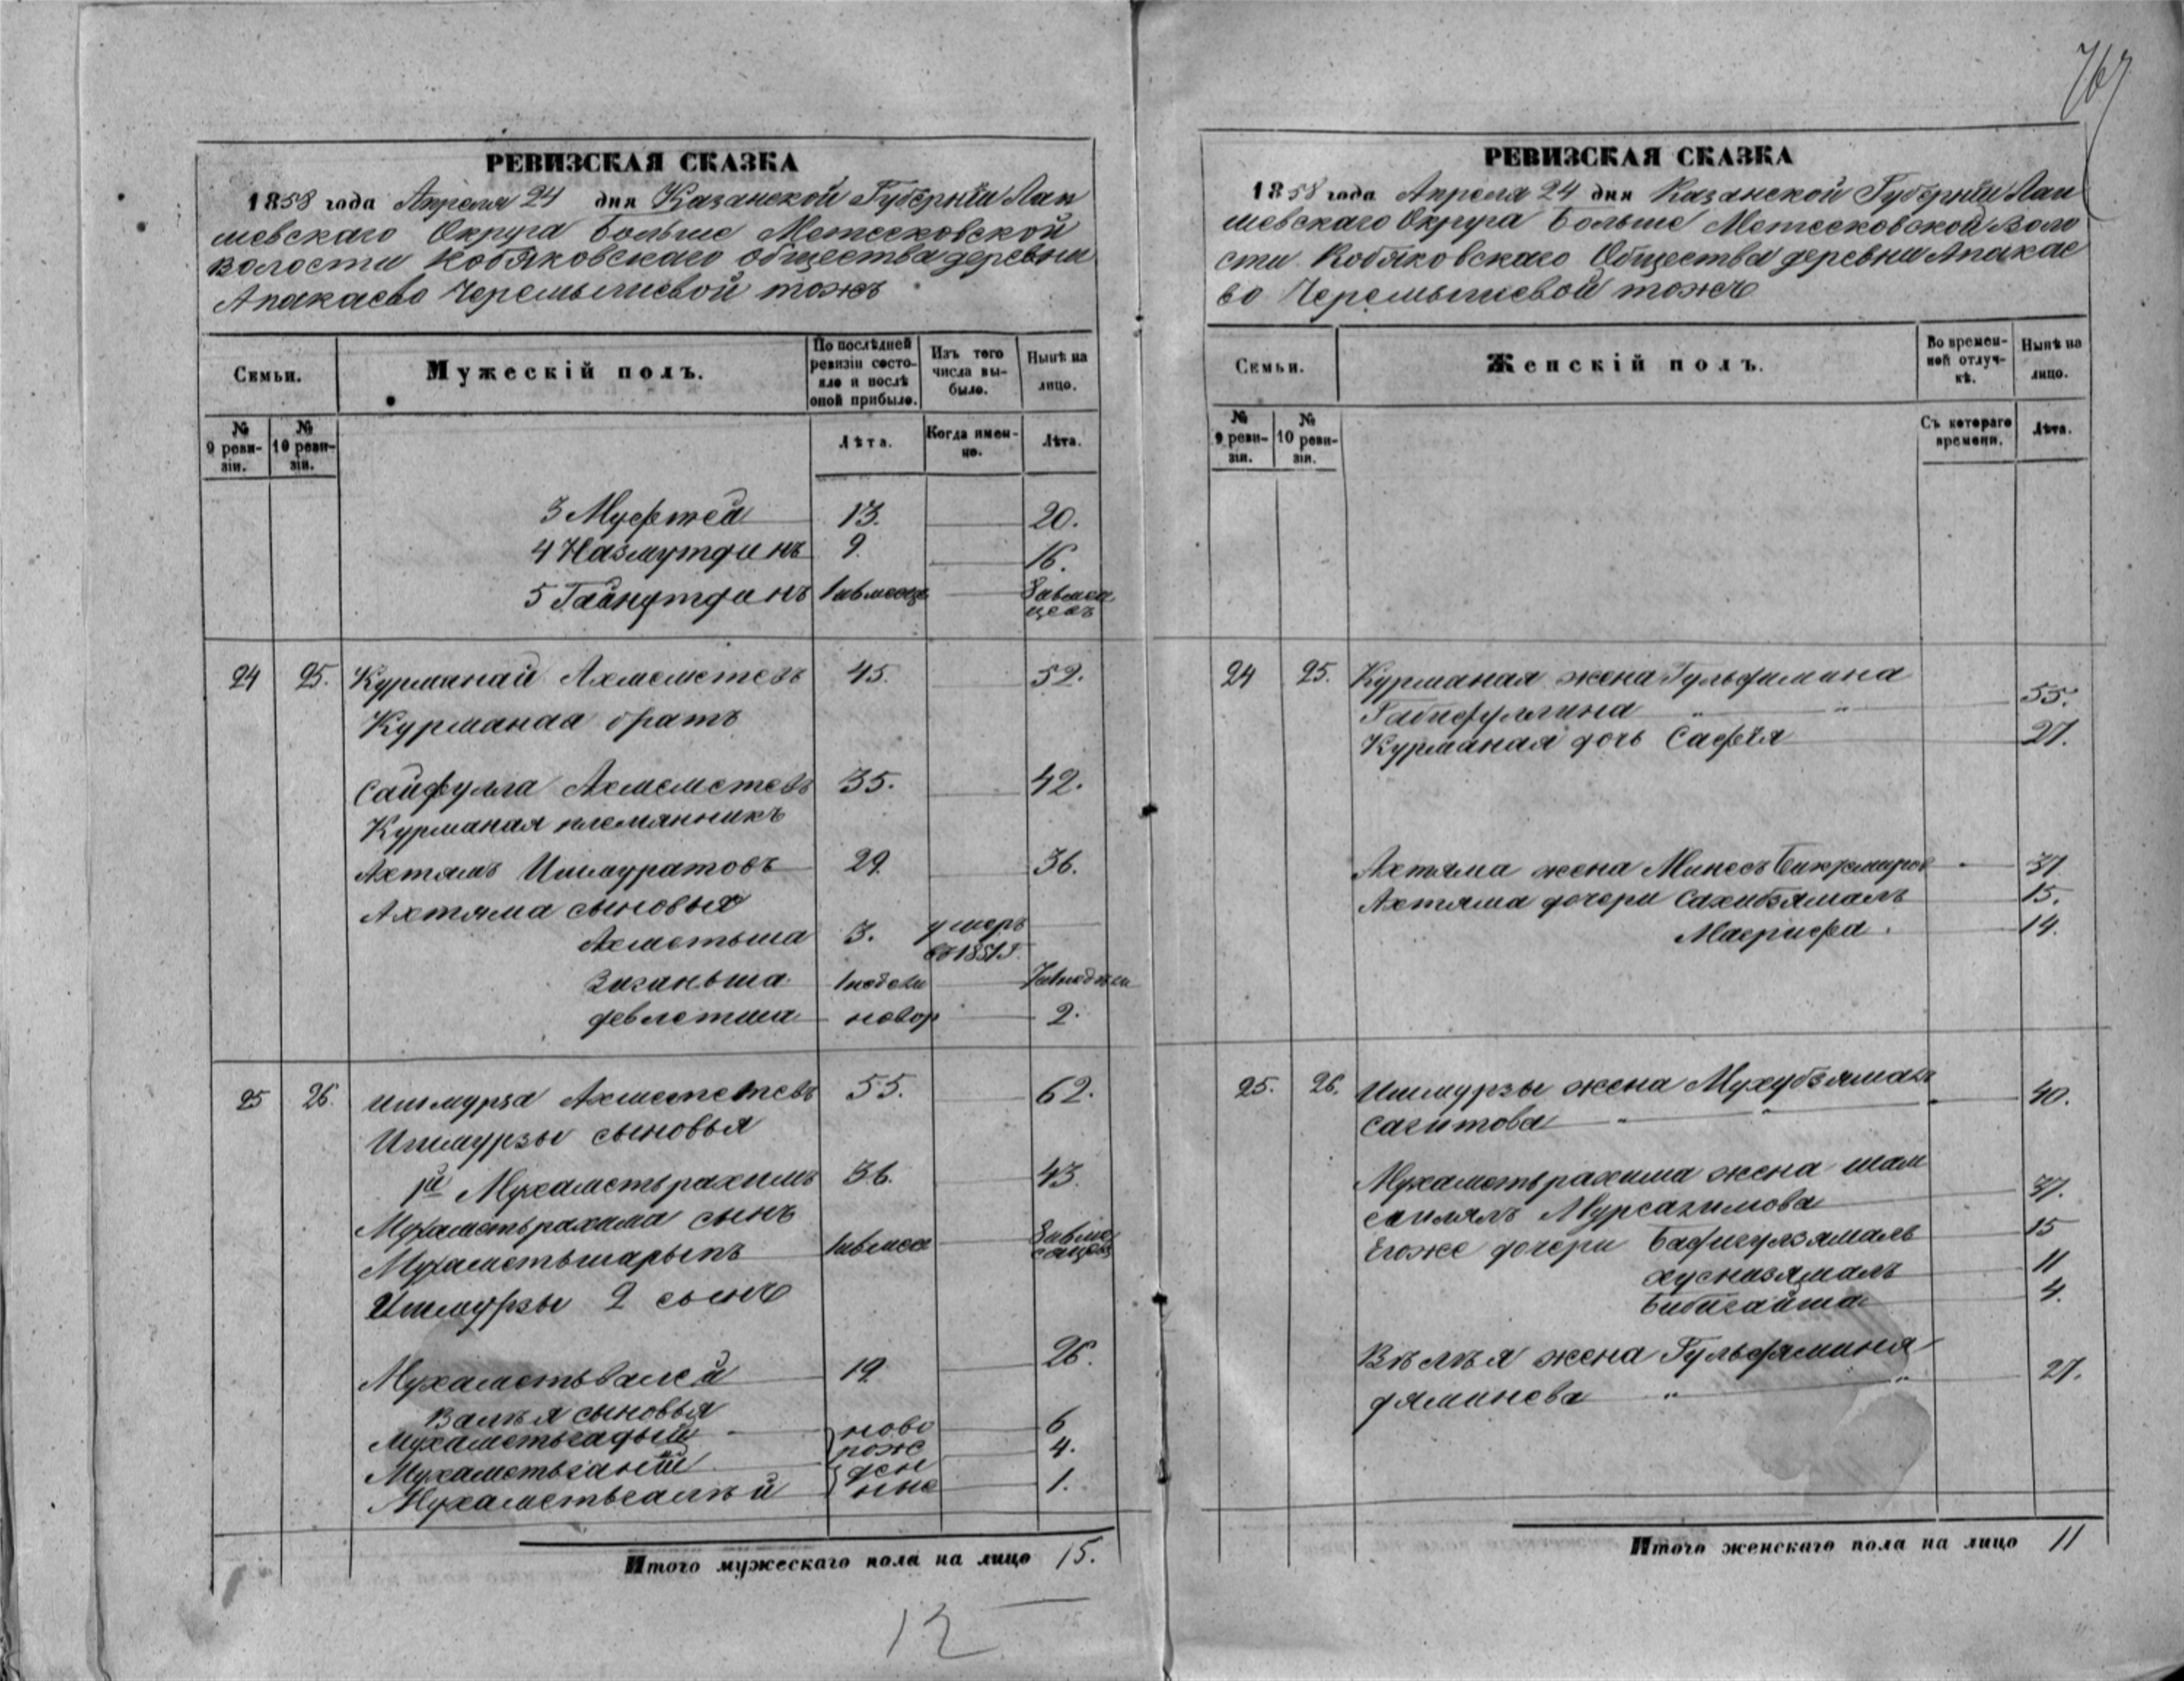 767
РЕВИЗСКАЯ СКАЗКА
1858 года Апреля 24 дня Казанской Губерніи Лаи
шевскаго Округа Больше Метесковской
волости Кобяковскаго общества деревни
Апакаево Черемышевой тожъ
Семьи.
Мужескій полъ.
По послѣдней ревизіи состояло и послѣ оной прибыло.
Изъ того числа выбыло.
Нынѣ на лицо.
№ 9 ревизіи.
№ 10 ревизіи.
Лѣта.
Когда именно.
Лѣта.
3 Муфтей 13. 20.
4 Назмутдинъ 9. 16.
5 Гайнутдинъ
24 25. Курманай Ахмеметевъ 45. 52.
Курманая братъ
Сайфулла Ахмеметевъ 35. 42.
Курманая племянникъ
Ахтямъ Ишмуратовъ 29. 36.
Ахтяма сыновья
Ахметьша 3. умеръ
въ 1851 г.
Зиганьша 1 недели
девлетша новор 2.
25 26. Ишмурза Ахмеметевъ 55. 62.
Ишмурзы сыновья
1й Мухаметьрахимъ 36. 43.
Мухаметьрахима сынъ
Мухаметьшарыпъ
Ишмурзы 2 сынъ
Мухаметьвалей 19. 26.
Валѣя сыновья
Мухаметьгадый ново 6
Мухаметьганій рож 4.
Мухаметьгалѣй ден ные 1.
Итого мужескаго пола на лицо 15.
12
РЕВИЗСКАЯ СКАЗКА
1858 года Апреля 24 дня Казанской Губерніи Лаи
шевскаго Округа Больше Метесковской Воло
сти Кобяковскаго Общества деревни Апакае
во Черемышевой тожъ
Семьи.
Женскій полъ.
Во временной отлучкѣ.
Нынѣ на лицо.
№ 9 ревизіи.
№ 10 ревизіи.
Съ котораго времени.
Лѣта.
24 25. Курманая жена Гульфимина
Габифуллина " " 55.
Курманая дочь Сафія 27.
Ахтяма жена Минесъ 37
Ахтяма дочери Сахибзямалъ 15.
14.
25. 26. Ишмурзы жена Мухубзямалъ
Сагитова " " 40.
Мухаметьрахима жена шам
Мурсагимова 37.
Егоже дочери Бафигулзямаль 15
хуснизямалъ 11
Бибигайша 4.
Вѣлѣя жена Гульфямина
дяминева " " 27.
Итого женскаго пола на лицо 11